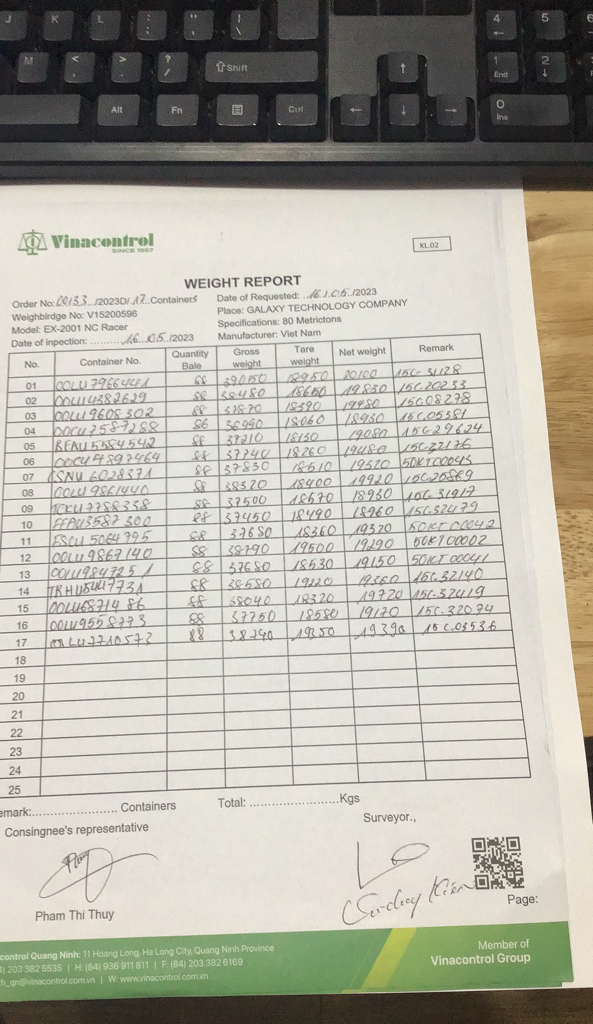 J K L : " | 4 ← 5 6
M < , > . ? / ⇧Shift ↑ 1 End 2 ↓
Alt Fn Ctrl ← ↓ → 0 Ins
Vinacontrol
SINCE 1957
KL.02
WEIGHT REPORT
Order No: 00133 /2023D/ 17 Containers
Date of Requested: 16/05/2023
Weighbirdge No: V15200596
Place: GALAXY TECHNOLOGY COMPANY
Model: EX-2001 NC Racer
Specifications: 80 Metrictons
Date of inpection: ..........16.05./2023
Manufacturer: Viet Nam
No. Container No. Quantity Bale Gross weight Tare weight Net weight Remark
01 88 39050 18950 20100 15C-31128
02 OOLU4382629 88 38480 18650 19830 15C20233
03 OOLU9608302 88 37870 18390 19480 15C08278
04 86 36990 18060 18930 15C05381
05 BEAU5584542 88 37210 18130 19080 15C29624
06 88 37740 18260 19480 15C32176
07 CSNU6028371 88 37830 18510 19320 50KT00045
08 OOLU9861440 88 38320 18400 19920 15C20869
09 TCKU7788338 88 37500 18570 18930 15C-31917
10 FFAU3587300 88 37450 18490 18960 15C32479
11 FSCU5064795 88 37680 18360 19320 50KT00042
12 OOLU9867140 88 38790 19500 19290 50KT00002
13 OOLU9847251 88 37680 18530 19150 50KT00041
14 88 38580 15C32140
15 OOLU6871486 88 38040 18320 19720 15C-32419
16 OOLU9558773 88 37750 18580 19170 15C-32074
17 88 38740 19350 19390 15C03536
18
19
20
21
22
23
24
25
emark:...................... Containers Total: .......................Kgs
Consingnee's representative
Surveyor.,
Pham Thi Thuy
Page:
control Quang Ninh: 11 Hoang Long, Ha Long City, Quang Ninh Province
) 203 382 5535 | H: (84) 936 911 811 | F: (84) 203 382 6169
h_qn@vinacontrol.com.vn | W: www.vinacontrol.com.vn
Member of
Vinacontrol Group